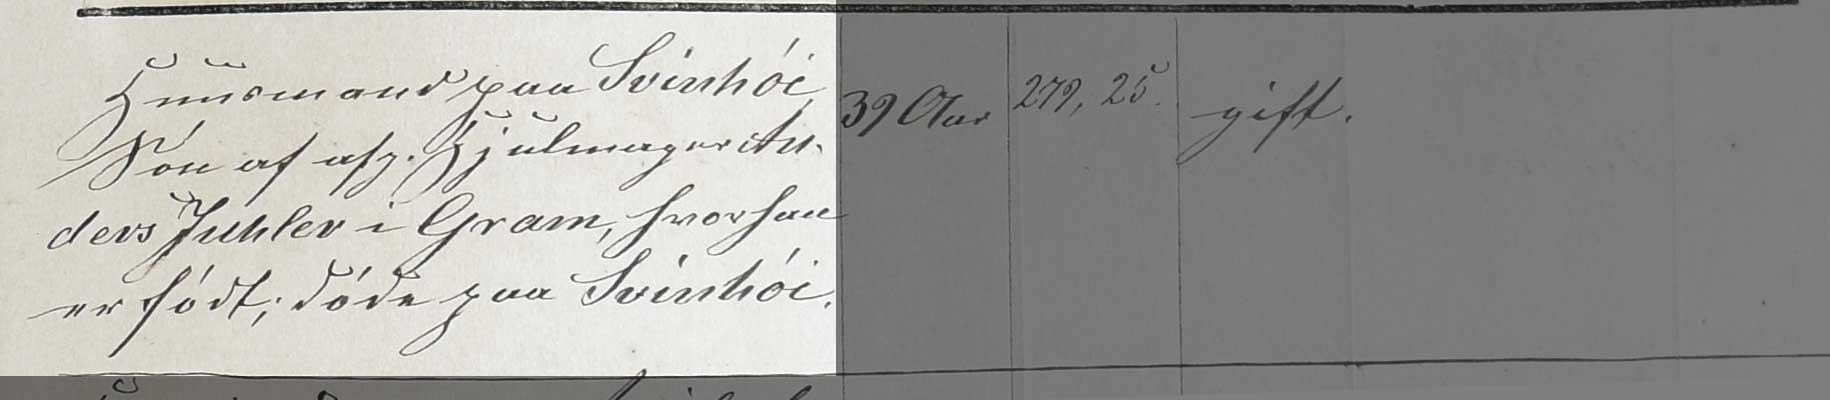 Huusmand paa Svinhöi,
Sön af afg. Hjulmager An-
ders Juhler i Gram, hvor han
er födt; döde paa Svinhöi.
39 Aar
279, 25.
gift.